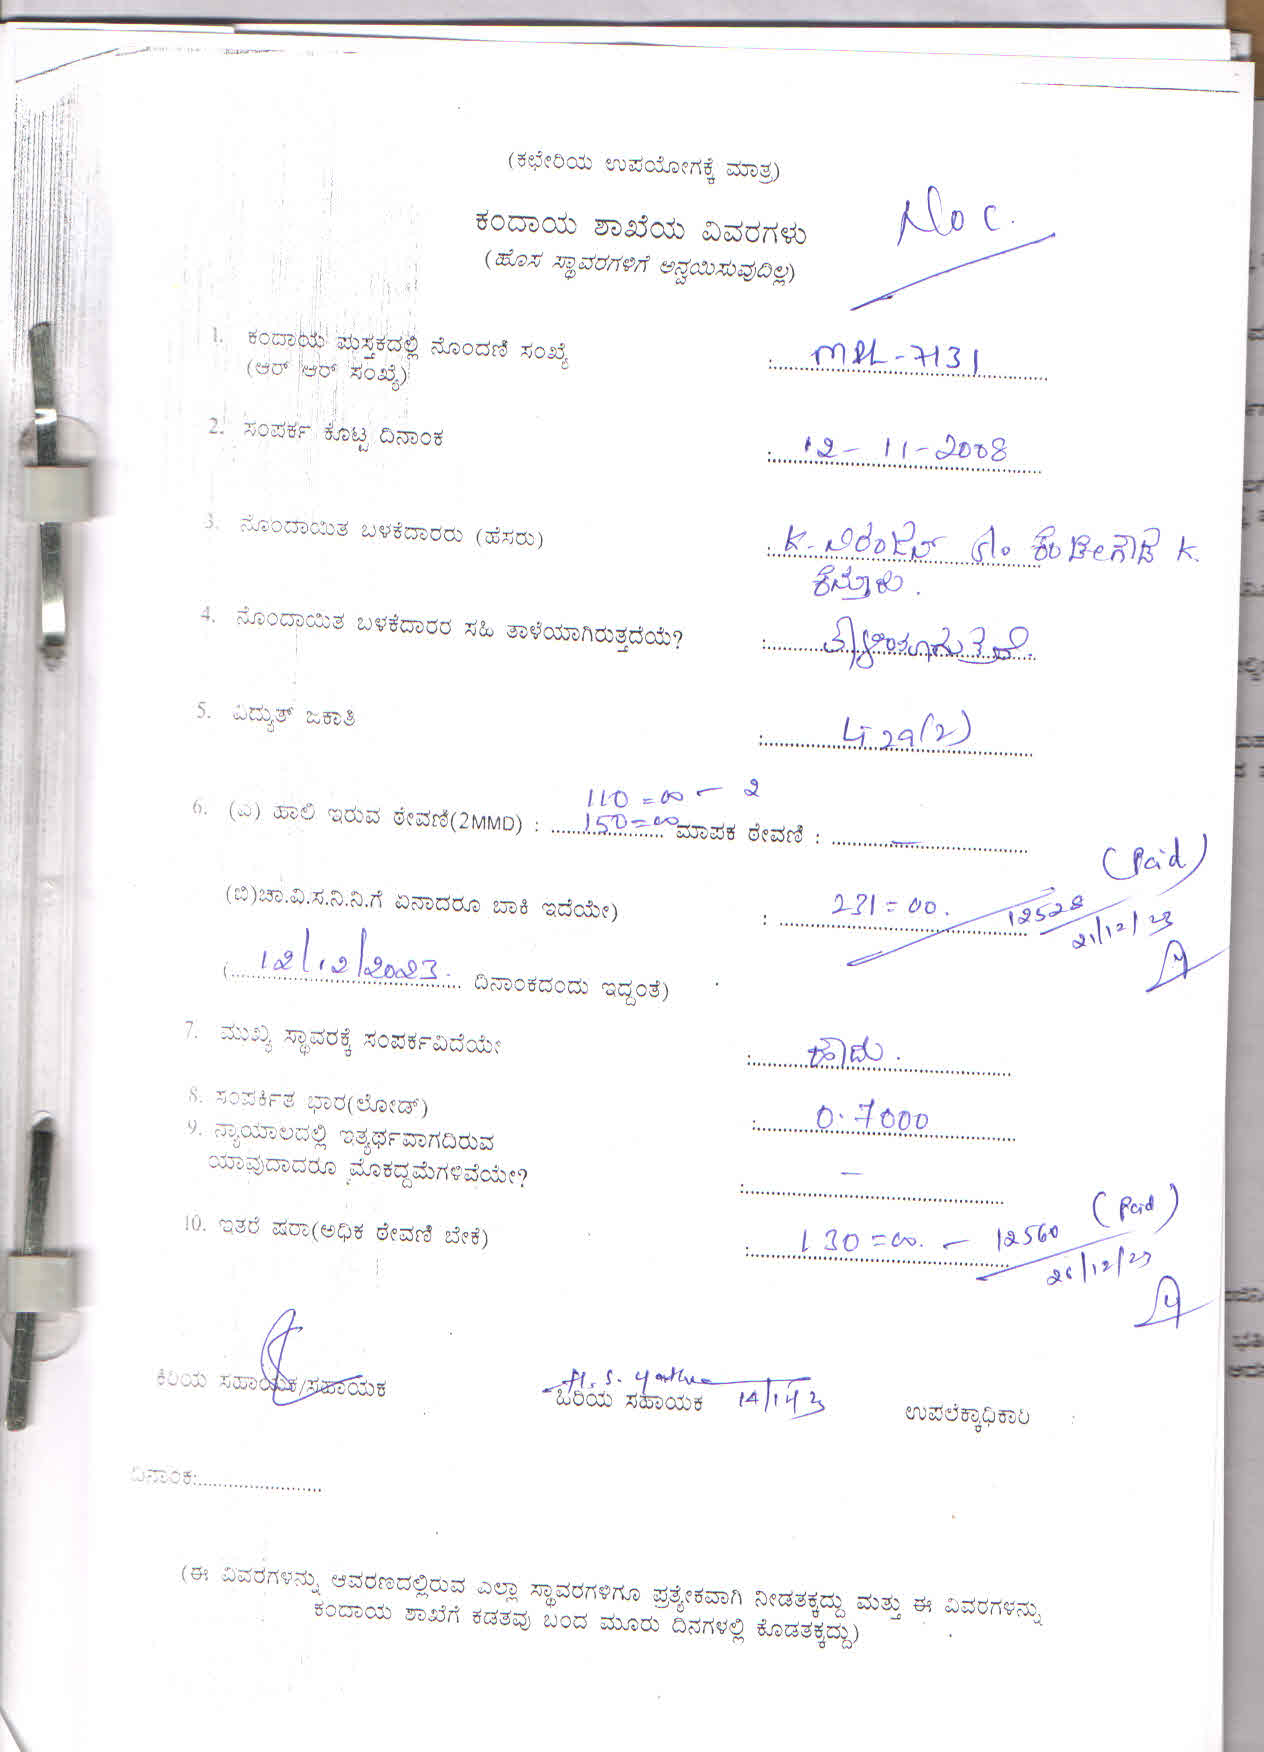 (ಕಛೇರಿಯ ಉಪಯೋಗಕ್ಕೆ ಮಾತ್ರ)
Noc.
ಕಂದಾಯ ಶಾಖೆಯ ವಿವರಗಳು
(ಹೊಸ ಸ್ಥಾವರಗಳಿಗೆ ಅನ್ವಯಿಸುವುದಿಲ್ಲ)
1. ಕಂದಾಯ ಪುಸ್ತಕದಲ್ಲಿ ನೊಂದಣಿ ಸಂಖ್ಯೆ
(ಆರ್ ಆರ್ ಸಂಖ್ಯೆ) : -7131
2. ಸಂಪರ್ಕ ಕೊಟ್ಟ ದಿನಾಂಕ : 12-11-2008
3. ನೊಂದಾಯಿತ ಬಳಕೆದಾರರು (ಹೆಸರು) : K. ನಿರಂಜನ್ K.
4. ನೊಂದಾಯಿತ ಬಳಕೆದಾರರ ಸಹಿ ತಾಳೆಯಾಗಿರುತ್ತದೆಯೆ? :
5. ವಿದ್ಯುತ್ ಜಕಾತಿ :
110=00 - 2
6. (ಎ) ಹಾಲಿ ಇರುವ ಠೇವಣಿ(2MMD) : 150=00 ಮಾಪಕ ಠೇವಣಿ : —
(Paid)
(ಬಿ)ಚಾ.ವಿ.ಸ.ನಿ.ನಿ.ಗೆ ಏನಾದರೂ ಬಾಕಿ ಇದೆಯೇ) : 231=00. 12528
21/12/23
(12/12/2023. ದಿನಾಂಕದಂದು ಇದ್ದಂತೆ)
7. ಮುಖ್ಯ ಸ್ಥಾವರಕ್ಕೆ ಸಂಪರ್ಕವಿದೆಯೇ : ಹೌದು.
8. ಸಂಪರ್ಕಿತ ಭಾರ(ಲೋಡ್) : 0.7000
9. ನ್ಯಾಯಾಲದಲ್ಲಿ ಇತ್ಯರ್ಥವಾಗದಿರುವ
ಯಾವುದಾದರೂ ಮೊಕದ್ದಮೆಗಳಿವೆಯೇ? : —
(Paid)
10. ಇತರೆ ಷರಾ(ಅಧಿಕ ಠೇವಣಿ ಬೇಕೆ) : 130=00. - 12560
26/12/23
ಕಿರಿಯ ಸಹಾಯಕ/ಸಹಾಯಕ ಹಿರಿಯ ಸಹಾಯಕ ಉಪಲೆಕ್ಕಾಧಿಕಾರಿ
ದಿನಾಂಕ:
(ಈ ವಿವರಗಳನ್ನು ಆವರಣದಲ್ಲಿರುವ ಎಲ್ಲಾ ಸ್ಥಾವರಗಳಿಗೂ ಪ್ರತ್ಯೇಕವಾಗಿ ನೀಡತಕ್ಕದ್ದು ಮತ್ತು ಈ ವಿವರಗಳನ್ನು
ಕಂದಾಯ ಶಾಖೆಗೆ ಕಡತವು ಬಂದ ಮೂರು ದಿನಗಳಲ್ಲಿ ಕೊಡತಕ್ಕದ್ದು)